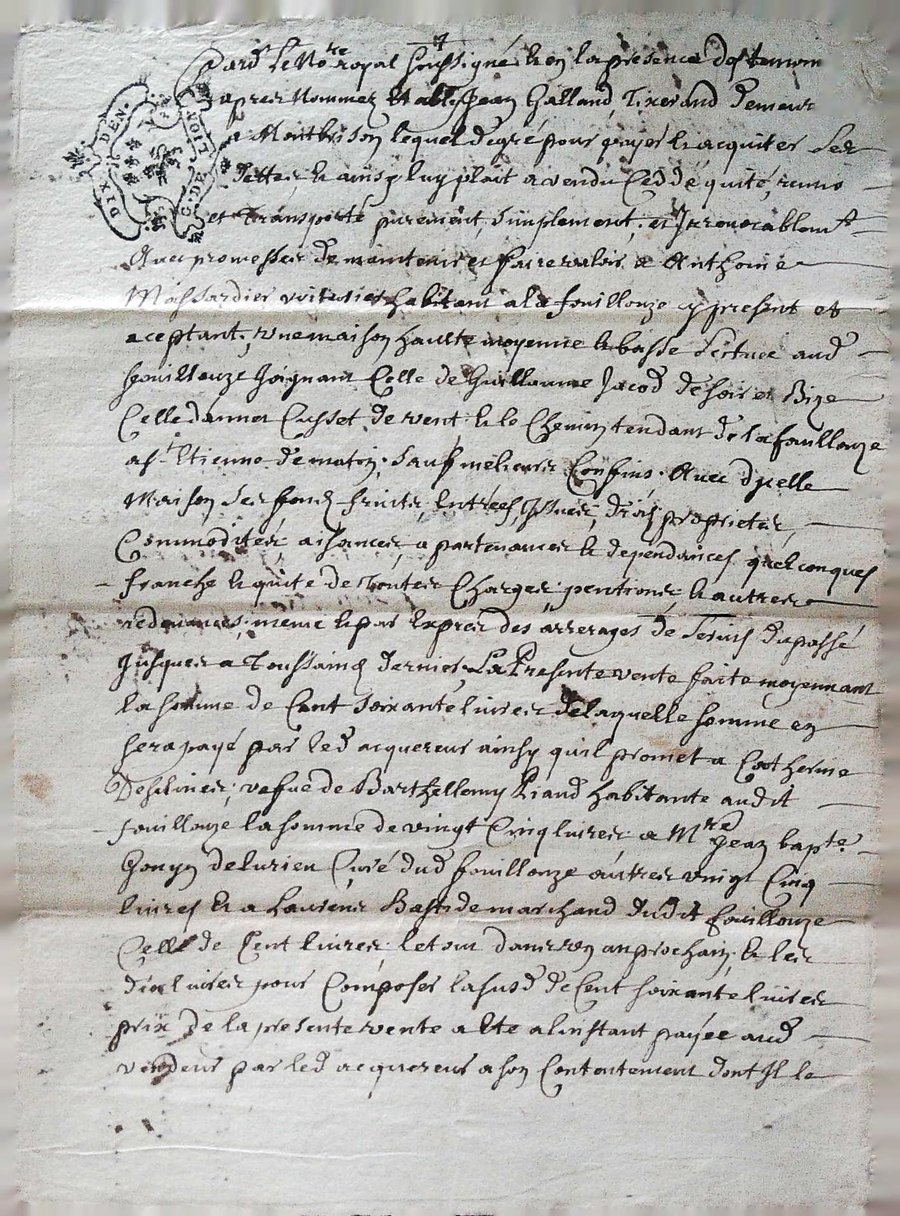 Pard. le No.re royal soussigné & en la presence des temoin
apres nommez estably Jean Galland, Tixerand demeur
a Montbrison lequel de gré pour payer & acquiter ses
dettes, & ainsy luy plait a vendu Ceddé quité, remis
et transporté purement, Simplement, et Irrevocablem.t
Avec promesses de maintenir et faire valoir a Anthoine
Massardier voiturier habitant a la fouillouze cy present et
aceptant, une maison haulte moyenne & basse scituee aud.
fouillouze Joignant Celle de Guillaume Jacod de soir et Bize
Celle dannet Cusset de vent & le Chemin tendant de la fouillouze
a s.t Etienne de matin, sauf meilleurs Confins. Avec d'icelle
Maison ses fond, fruits, Entrées, Yssues, droits, proprietes,
Commodités, aisances, apartenances & dependances quelconques
franche & quite de toutes Charges, pentions, & autres
redevances, meme & par Expres des arrerages de servis du passé
Jusques a Toussaind dernier, La Presente vente faite moyennant
la somme de Cent soixante livres de laquelle somme en
sera payé par led. acquereur ainsy quil promet a Catherine
vefve de Barthellemy habitante audit
fouillouze la somme de vingt Cinq livres, a M.re Jean bap.te
Gonyn delurieu Curé dud. fouillouze autres vingt Cinq
livres & a Laurens Bastide marchand dudit fouillouze
Celle de Cent livres, le tout dans un an prochain, & les
dix livres pour Composer la susd. de Cent soixante livres
prix de la presente vente a ete a linstant payée aud.
vendeur par led. acquereur a son Contentement dont Il le
DIX DEN.
G. DE LION